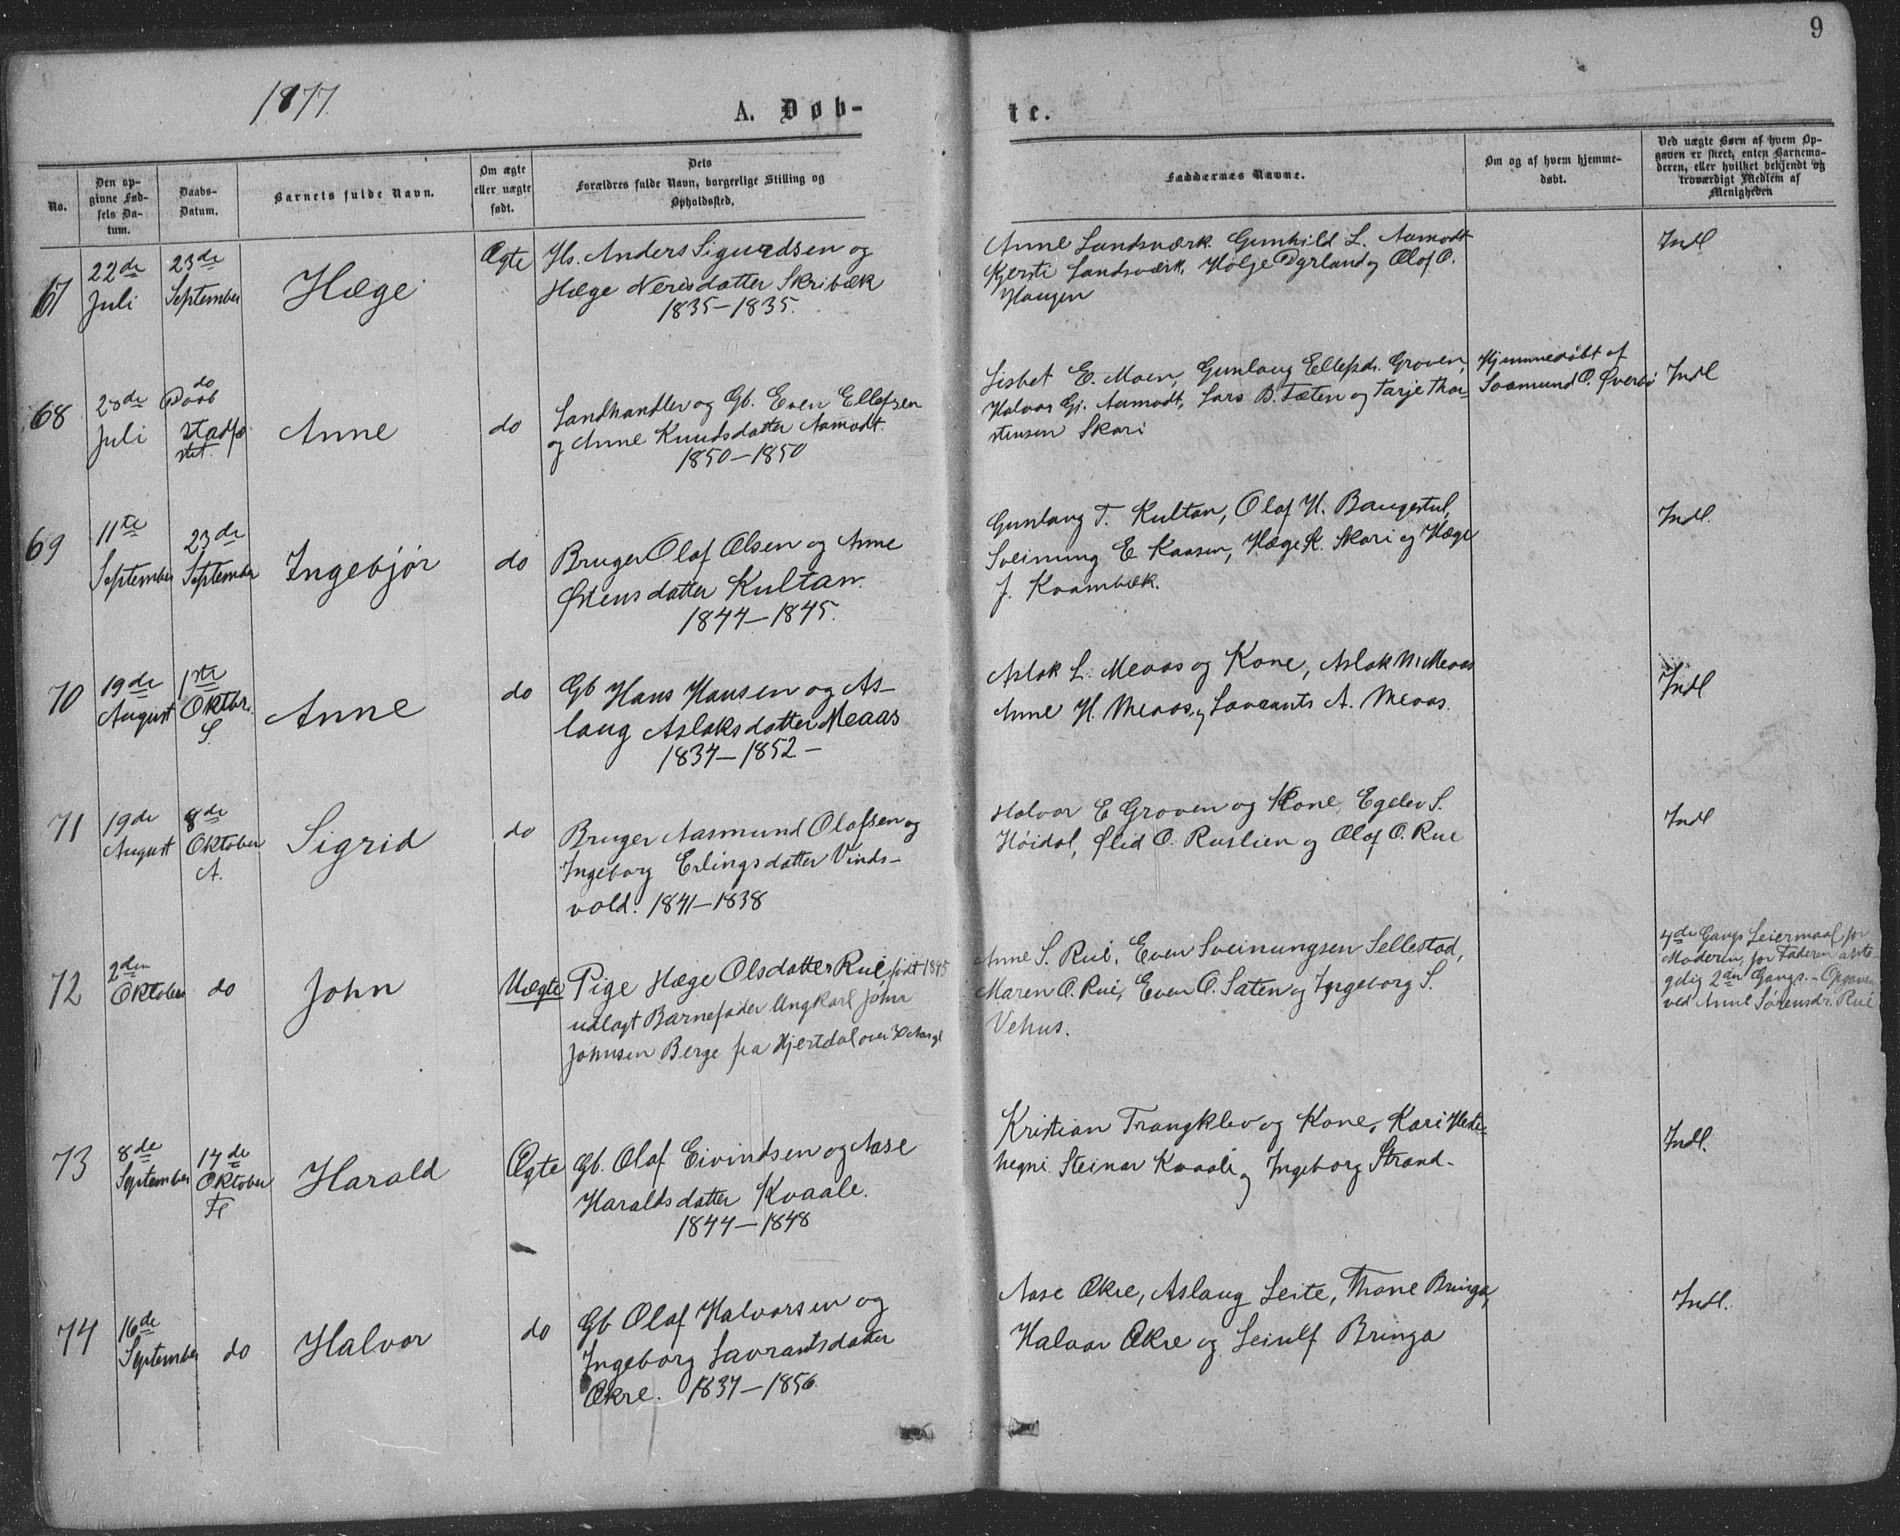 9
1877
A. Døb-
te.
No.
Den op-
givne Fød-
sels Da-
tum.
Daabs-
Datum.
Barnets fulde Navn.
Om ægte
eller uægte
født.
Dets
Forældres fulde Navn, borgerlige Stilling og
Opholdssted.
Faddernes Navne.
Om og af hvem hjemme-
døbt.
Ved uægte Børn af hvem Op-
gaven er skeet, enten Barnemo-
deren, eller hvilket bekjendt og
troværdigt Medlem af
Menigheden
67
22de
Juli
23de
September
Hæge
Ægte
Hs. Anders Sigurdsen og
Hæge Nerisdatter Skribæk
1835-1835.
Anne Landsværk Gunhild L. Aamodt
Kjersti Landsværk, Holje Dyrland og Olof O.
Haugen
Indl
68
28de
Juli
do
Daab
stadfæ
stet.
Anne
do
Landhandler og Gb. Even Ellefsen
og Anne Knudsdatter Aamodt.
1850-1850
Lisbet E. Moen, Gunlaug Ellefsdr. Groven,
Halvor Gj. Aamodt, Lars B. Tæten og Tarje Thor-
stensen Skori
Hjemmedøbt af
Aamund O. Øverbø
Indl
69
11te
September
23de
September
Ingebjør
do
Bruger Olaf Olsen og Anne
Østensdatter Kultan.
1844-1845.
Gunlaug T. Kultan, Olaf H. Baugestul,
Sveinung E Kaasen, Hæge K. Skori og Hæge
J. Kvambæk.
Indl.
70
19de
August
1ste
Oktbr.
S.
Anne
do
Gb Hans Hansen og As-
laug Aslaksdatter Meaas
1837-1852-
Aslak L. Meaas og Kone, Aslak N. Meaas
Anne H. Meaas og Lavrants A. Meaas.
Indl
71
19de
August
8de
Oktober
A.
Sigrid
do
Bruger Aasmund Olafsen og
Ingeborg Erlingsdatter Vinds-
vold. 1841-1838
Halvor E Groven og Kone, Egelev S.
Høidal, Ølid O. Ruslien og Olof O. Rue
Indl
72
2den
Oktober
do
John
Uægte
Pige Hæge Olsdatter Rue født 1845
udlagt Barnefader Ungkarl John
Johnsen Berge fra Hjertdal over 30 Aar gl
Anne S. Rue, Even Sveinungsen Sellestad,
Maren O. Rue, Even O. Saten og Ingeborg S.
Vehus.
4de Gangs Leiermaal for
Moderen, for Faderen anta-
gelig 2den Gangs. - Opgaven
ved Anne Sørensdr. Rue
73
8de
September
14de
Oktober
Fl
Harald
Ægte
Gb. Olaf Eivindsen og Aase
Haraldsdatter Kvaale.
1844-1848
Kristian Trangklev og Kone, Kari Hede-
negni Steinar Kvaale og Ingeborg Strand-
Indl.
74
16de
September
do
Halvor
do
Gb Olaf Halvorsen og
Ingeborg Lavrantsdatter
Økre. 1837-1856
Aase Økre, Aslaug Leite, Thone Bringa,
Halvor Økre og Leiulf Bringa
Indl.